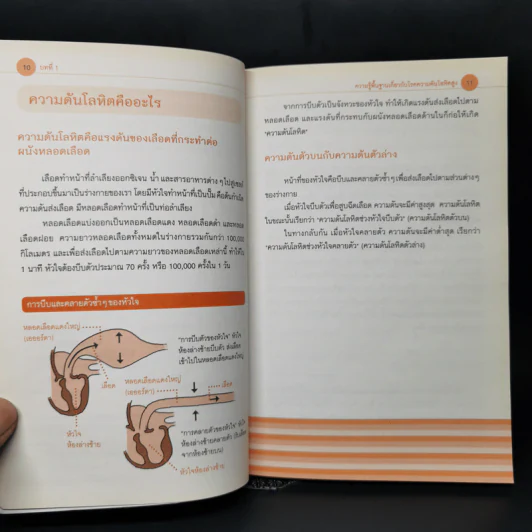 10 บทที่ 1
ความดันโลหิตคืออะไร
ความดันโลหิตคือแรงดันของเลือดที่กระทำต่อ
ผนังหลอดเลือด
เลือดทำหน้าที่ลำเลียงออกซิเจน น้ำ และสารอาหารต่าง ๆ ไปสู่เซลล์
ที่ประกอบขึ้นมาเป็นร่างกายของเรา โดยมีหัวใจทำหน้าที่เป็นปั๊ม คือต้นกำเนิด
ความดันส่งเลือด มีหลอดเลือดทำหน้าที่เป็นท่อลำเลียง
หลอดเลือดแบ่งออกเป็นหลอดเลือดแดง หลอดเลือดดำ และหลอด
เลือดฝอย ความยาวหลอดเลือดทั้งหมดในร่างกายรวมกันกว่า 100,000
กิโลเมตร และเพื่อส่งเลือดไปตามความยาวของหลอดเลือดเหล่านี้ ทำให้ใน
1 นาที หัวใจต้องบีบตัวประมาณ 70 ครั้ง หรือ 100,000 ครั้งใน 1 วัน
การบีบและคลายตัวซ้ำๆ ของหัวใจ
หลอดเลือดแดงใหญ่
(เอออร์ตา)
"การบีบตัวของหัวใจ" หัวใจ
ห้องล่างซ้ายบีบตัว ส่งเลือด
เข้าไปในหลอดเลือดแดงใหญ่
เลือด
หัวใจ
ห้องล่างซ้าย
หลอดเลือดแดงใหญ่
(เอออร์ตา)
เลือด
"การคลายตัวของหัวใจ" หัวใจ
ห้องล่างซ้ายคลายตัว (รับเลือด
จากห้องซ้ายบน)
หัวใจห้องล่างซ้าย
ความรู้พื้นฐานเกี่ยวกับโรคความดันโลหิตสูง 11
จากการบีบตัวเป็นจังหวะของหัวใจ ทำให้เกิดแรงดันส่งเลือดไปตาม
หลอดเลือด และแรงดันที่กระทบกับผนังหลอดเลือดด้านในก็ก่อให้เกิด
"ความดันโลหิต"
ความดันตัวบนกับความดันตัวล่าง
หน้าที่ของหัวใจคือบีบและคลายตัวซ้ำ ๆ เพื่อส่งเลือดไปตามส่วนต่างๆ
ของร่างกาย
เมื่อหัวใจบีบตัวเพื่อสูบฉีดเลือด ความดันจะมีค่าสูงสุด ความดันโลหิต
ในขณะนั้นเรียกว่า "ความดันโลหิตช่วงหัวใจบีบตัว" (ความดันโลหิตตัวบน)
ในทางกลับกัน เมื่อหัวใจคลายตัว ความดันจะมีค่าต่ำสุด เรียกว่า
"ความดันโลหิตช่วงหัวใจคลายตัว" (ความดันโลหิตตัวล่าง)